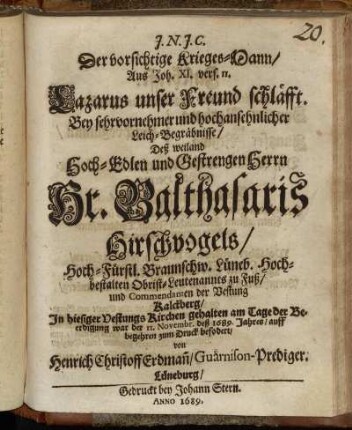 20.
J. N. J. C.
Der vorsichtige Krieges-Mann/
Aus Joh. XI. vers. 11.
Lazarus unser Freund schläfft.
Bey sehrvornehmer und hochansehnlicher
Leich-Begräbnisse/
Deß weiland
Hoch-Edlen und Gestrengen Herrn
Hr. Balthasaris
Hirschvogels/
Hoch-Fürstl. Braunschw. Lüneb. Hoch-
bestalten Obrist-Leutenannts zu Fuß/
und Commendanten der Vestung
Kalckberg/
In hiesiger Vestungs Kirchen gehalten am Tage der Be-
erdigung war der 11. Novembr. deß 1689. Jahres/ auff
begehren zum Druck befodert/
von
Henrich Christoff Erdman̄/ Guarnison-Prediger.
Lüneburg/
Gedruckt bey Johann Stern.
ANNO 1689.